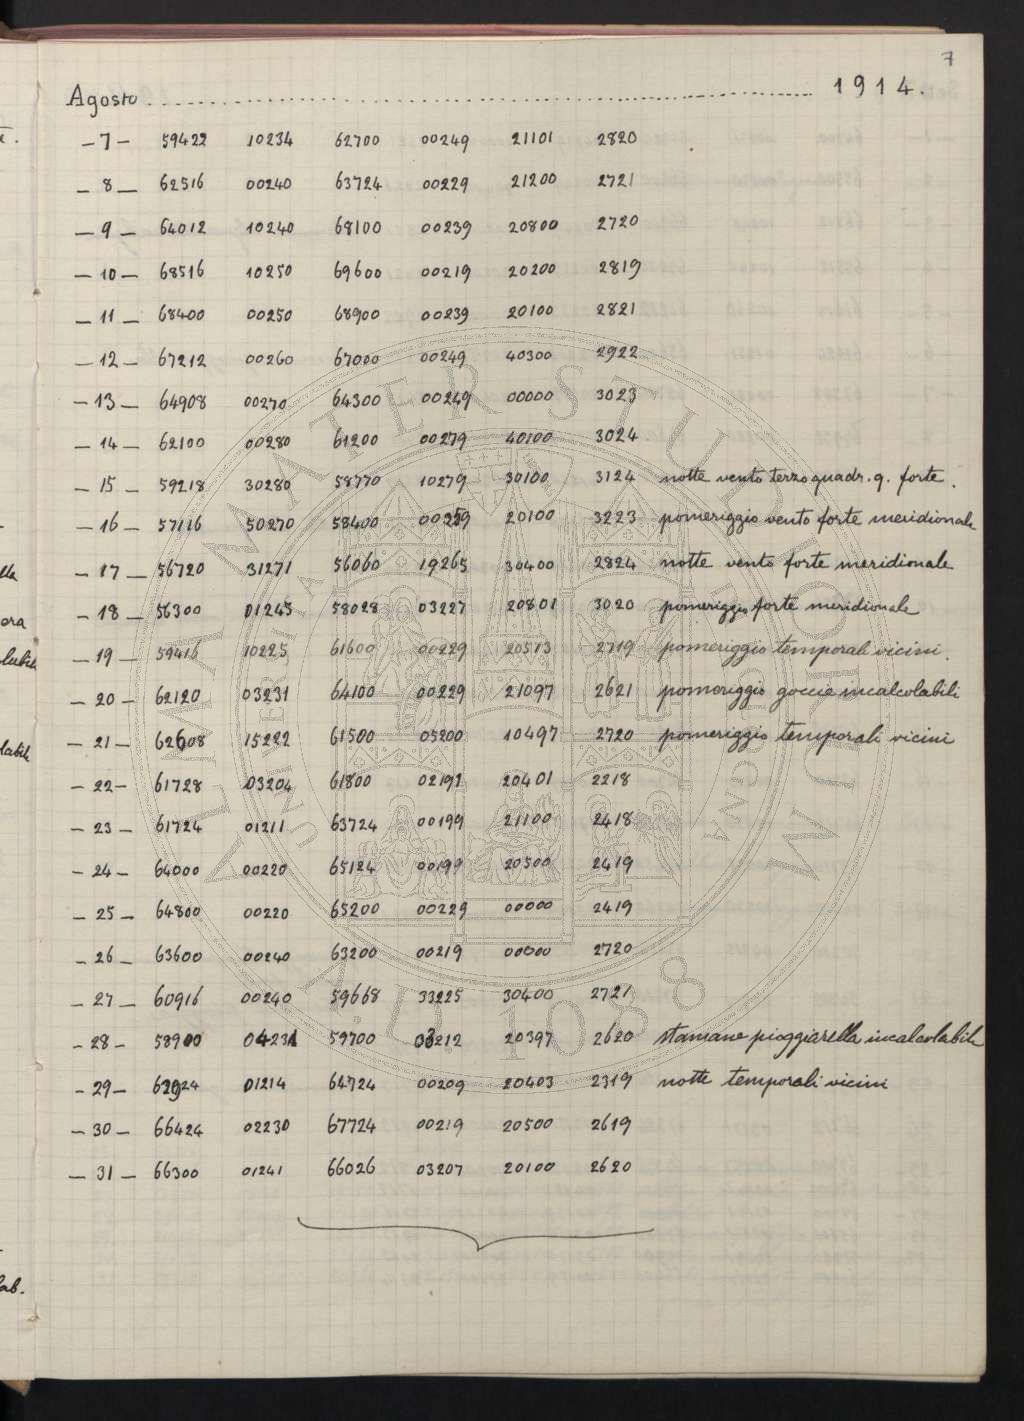 7
Agosto 1914.
-7- 59422 10234 62700 00249 21101 2820
-8- 62516 00240 63724 00229 21200 2721
-9- 64012 10240 68100 00239 20800 2720
-10- 68516 10250 69600 00219 20200 2819
-11- 68400 00250 68900 00239 20100 2821
-12- 67212 00260 67000 00249 40300 2922
-13- 64908 00270 64300 00249 00000 3023
-14- 62100 00280 61200 00279 40100 3024
-15- 59218 30280 58770 10279 30100 3124 notte vento terzo quadr. q. forte.
-16- 57116 50270 58400 20100 3223 pomeriggio vento forte meridionale
-17- 56720 31271 56060 19265 30400 2824 notte vento forte meridionale
-18- 56300 01245 58028 03227 20801 3020 pomeriggio forte meridionale
-19- 59416 10225 61600 00229 20513 2719 pomeriggio temporali vicini.
-20- 62120 03231 64100 00229 21097 2621 pomeriggio goccie incalcolabili
-21- 62608 15222 61500 05200 10497 2720 pomeriggio temporali vicini
-22- 61728 03204 61800 02192 20401 2218
-23- 61724 01211 63724 00199 21100 2418
-24- 64000 00220 65124 00199 20500 2419
-25- 64800 00220 65200 00229 00000 2419
-26- 63600 00240 63200 00219 00000 2720
-27- 60916 00240 59668 33225 30400 2721
-28- 58900 04231 59700 03212 20397 2620 stamane pioggiarella incalcolabile
-29- 62924 01214 64724 00209 20403 2319 notte temporali vicini
-30- 66424 02230 67724 00219 20500 2619
-31- 66300 01241 66026 03207 20100 2620
ALMA MATER STUDIORUM
A.D. 1088